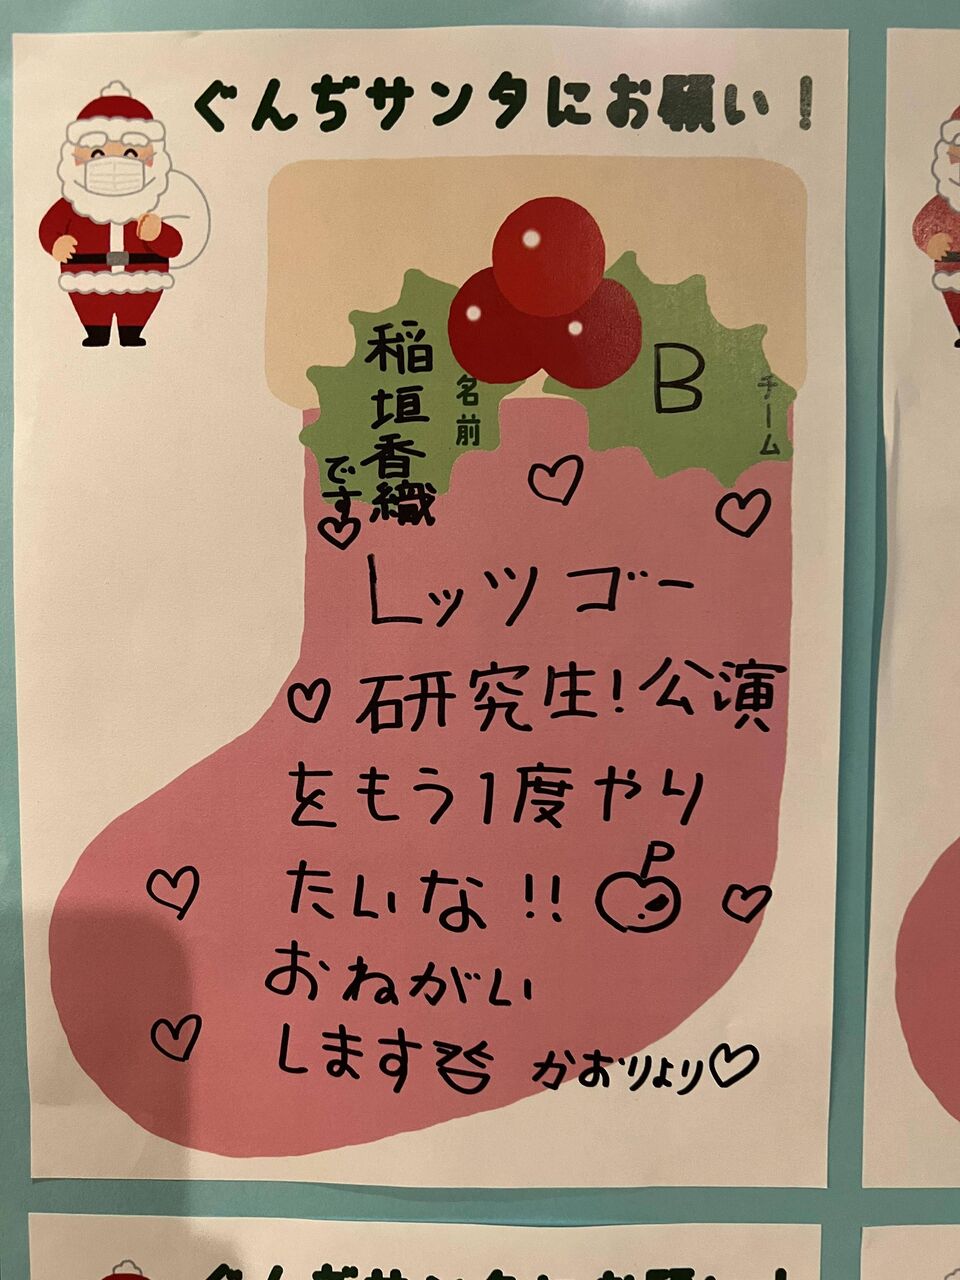 ぐんぢサンタにお願い!
チーム
B
名前
稲垣香織
です
レッツゴー
研究生!公演
をもう1度やり
たいな!!
P
おねがい
します
かおりより
ぐんぢサンタにお願い!